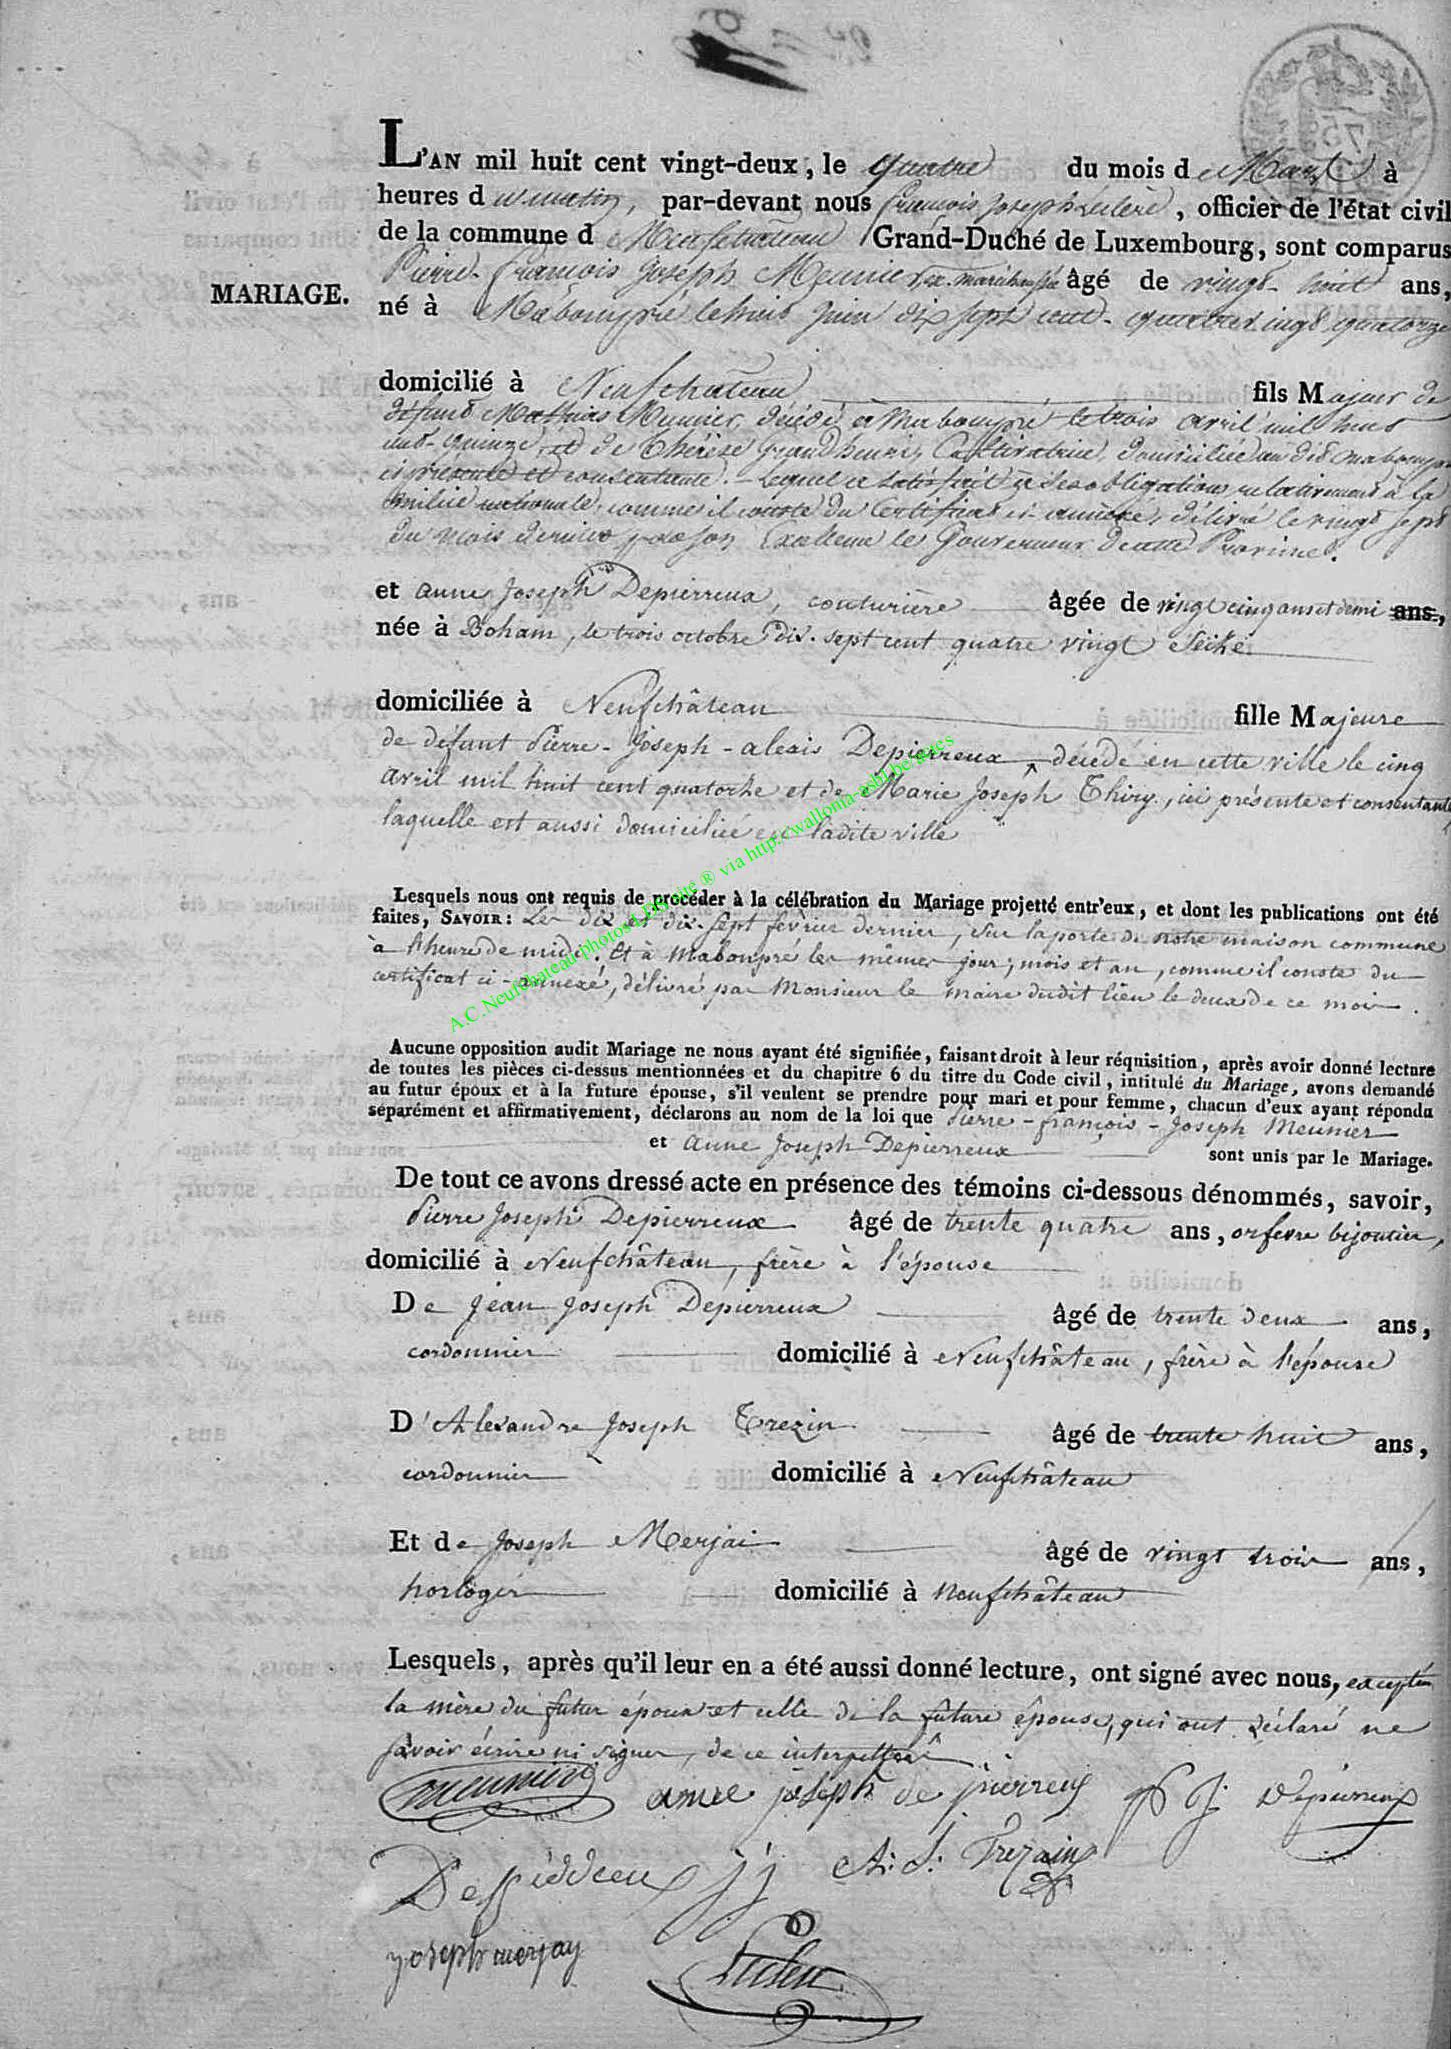 L'AN mil huit cent vingt-deux, le quatre du mois d e Mars à
heures d u matin, par-devant nous françois Joseph Leclere, officier de l'état civil
de la commune d e Neufchateau Grand-Duché de Luxembourg, sont comparus
MARIAGE.
Pierre-françois Joseph Meunier ex. maréchaussée âgé de vingt-huit ans,
né à Mabompré le huit Juin dix sept cent-quatrevingt quatorze
domicilié à Neufchateau fils M ajeur de
défunt Mathias Meunier, décédé à Mabompré le trois avril mil huit
cent-quinze, et de Thérèse Grandhenri, Cultivatrice, domiciliée au dit mabompré
ci présente et consentante. - Lequel a satisfait à ses obligations relativement à la
milice nationale, comme il conste du Certificat ci-annexé, délivré le vingt sept
du mois dernier par son Excellence le Gouverneur de cette Province.
et anne Joseph Depierreux, couturière âgée de vingt cinq ans et demi ans,
née à Boham, le trois octobre dix-sept cent quatre vingt seize
domiciliée à Neufchâteau fille M ajeure
de défunt Pierre-Joseph-alexis Depierreux décédé en cette ville le cinq
avril mil huit cent quatorze et de Marie Joseph Thiry, ici présente et consentante
laquelle est aussi domiciliée en ladite ville
Lesquels nous ont requis de procéder à la célébration du Mariage projetté entr'eux, et dont les publications ont été
faites, SAVOIR: Les dix et dix-sept février dernier, sur la porte de notre maison commune
à l'heure de midi. Et à Mabompré les mêmes jour, mois et an, comme il conste du
certificat ci-annexé, délivré par Monsieur le maire dudit lieu le deux de ce mois.
A.C.Neufchateau photos LDKsite ® via http://wallonia-asbl.be/actes
Aucune opposition audit Mariage ne nous ayant été signifiée, faisant droit à leur réquisition, après avoir donné lecture
de toutes les pièces ci-dessus mentionnées et du chapitre 6 du titre du Code civil, intitulé du Mariage, avons demandé
au futur époux et à la future épouse, s'il veulent se prendre pour mari et pour femme, chacun d'eux ayant répondu
séparément et affirmativement, déclarons au nom de la loi que Pierre-françois-Joseph Meunier
et anne Joseph Depierreux sont unis par le Mariage.
De tout ce avons dressé acte en présence des témoins ci-dessous dénommés, savoir,
Pierre Joseph Depierreux âgé de trente quatre ans, orfevre bijoutier,
domicilié à Neufchâteau, frère à l'épouse
D e Jean Joseph Depierreux âgé de trente deux ans,
cordonnier domicilié à Neufchâteau, frère à l'épouse
D 'Alexandre Joseph Trezin âgé de trente huit ans,
cordonnier domicilié à Neufchâteau
Et d e Joseph Merjai âgé de vingt trois ans,
horloger domicilié à Neufchâteau
Lesquels, après qu'il leur en a été aussi donné lecture, ont signé avec nous, excepté
la mère du futur époux et celle de la future épouse, qui ont déclaré ne
savoir écrire ni signer, de ce interpellées
meunier anne joseph de pierreux P J Depierreux
Depierreux j j A: J: Trezain
joseph merjay Leclere